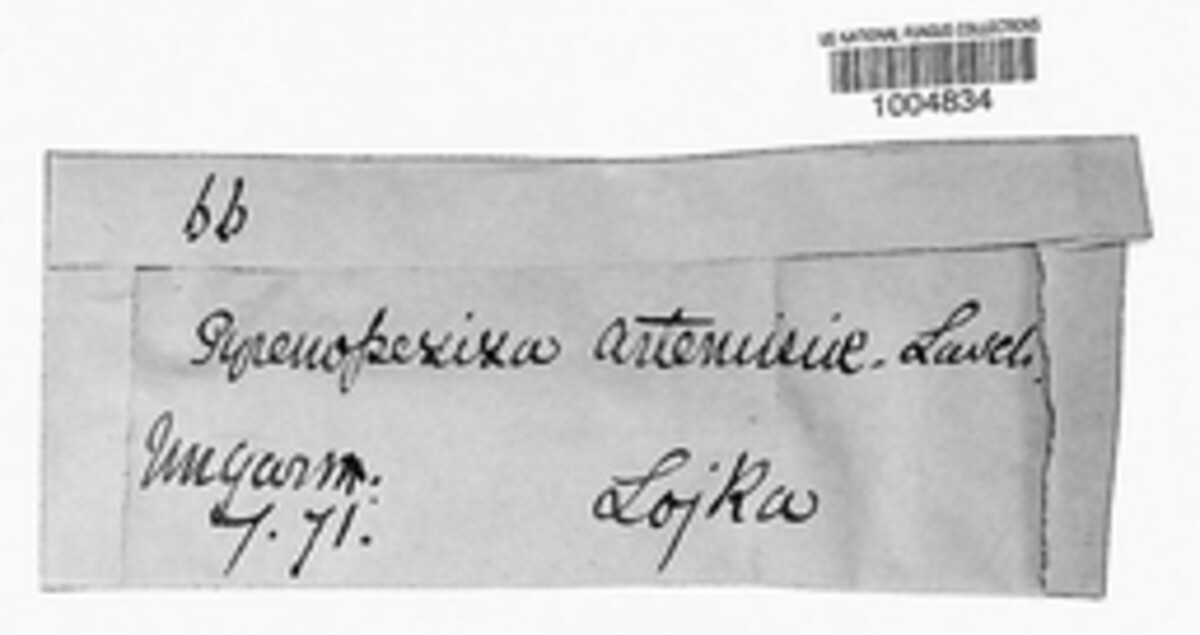 US NATIONAL FUNGUS COLLECTIONS
1004834
66
Pyrenopeziza artemisiae. Lasch.
Ungarn.
7. 71.
Lojka